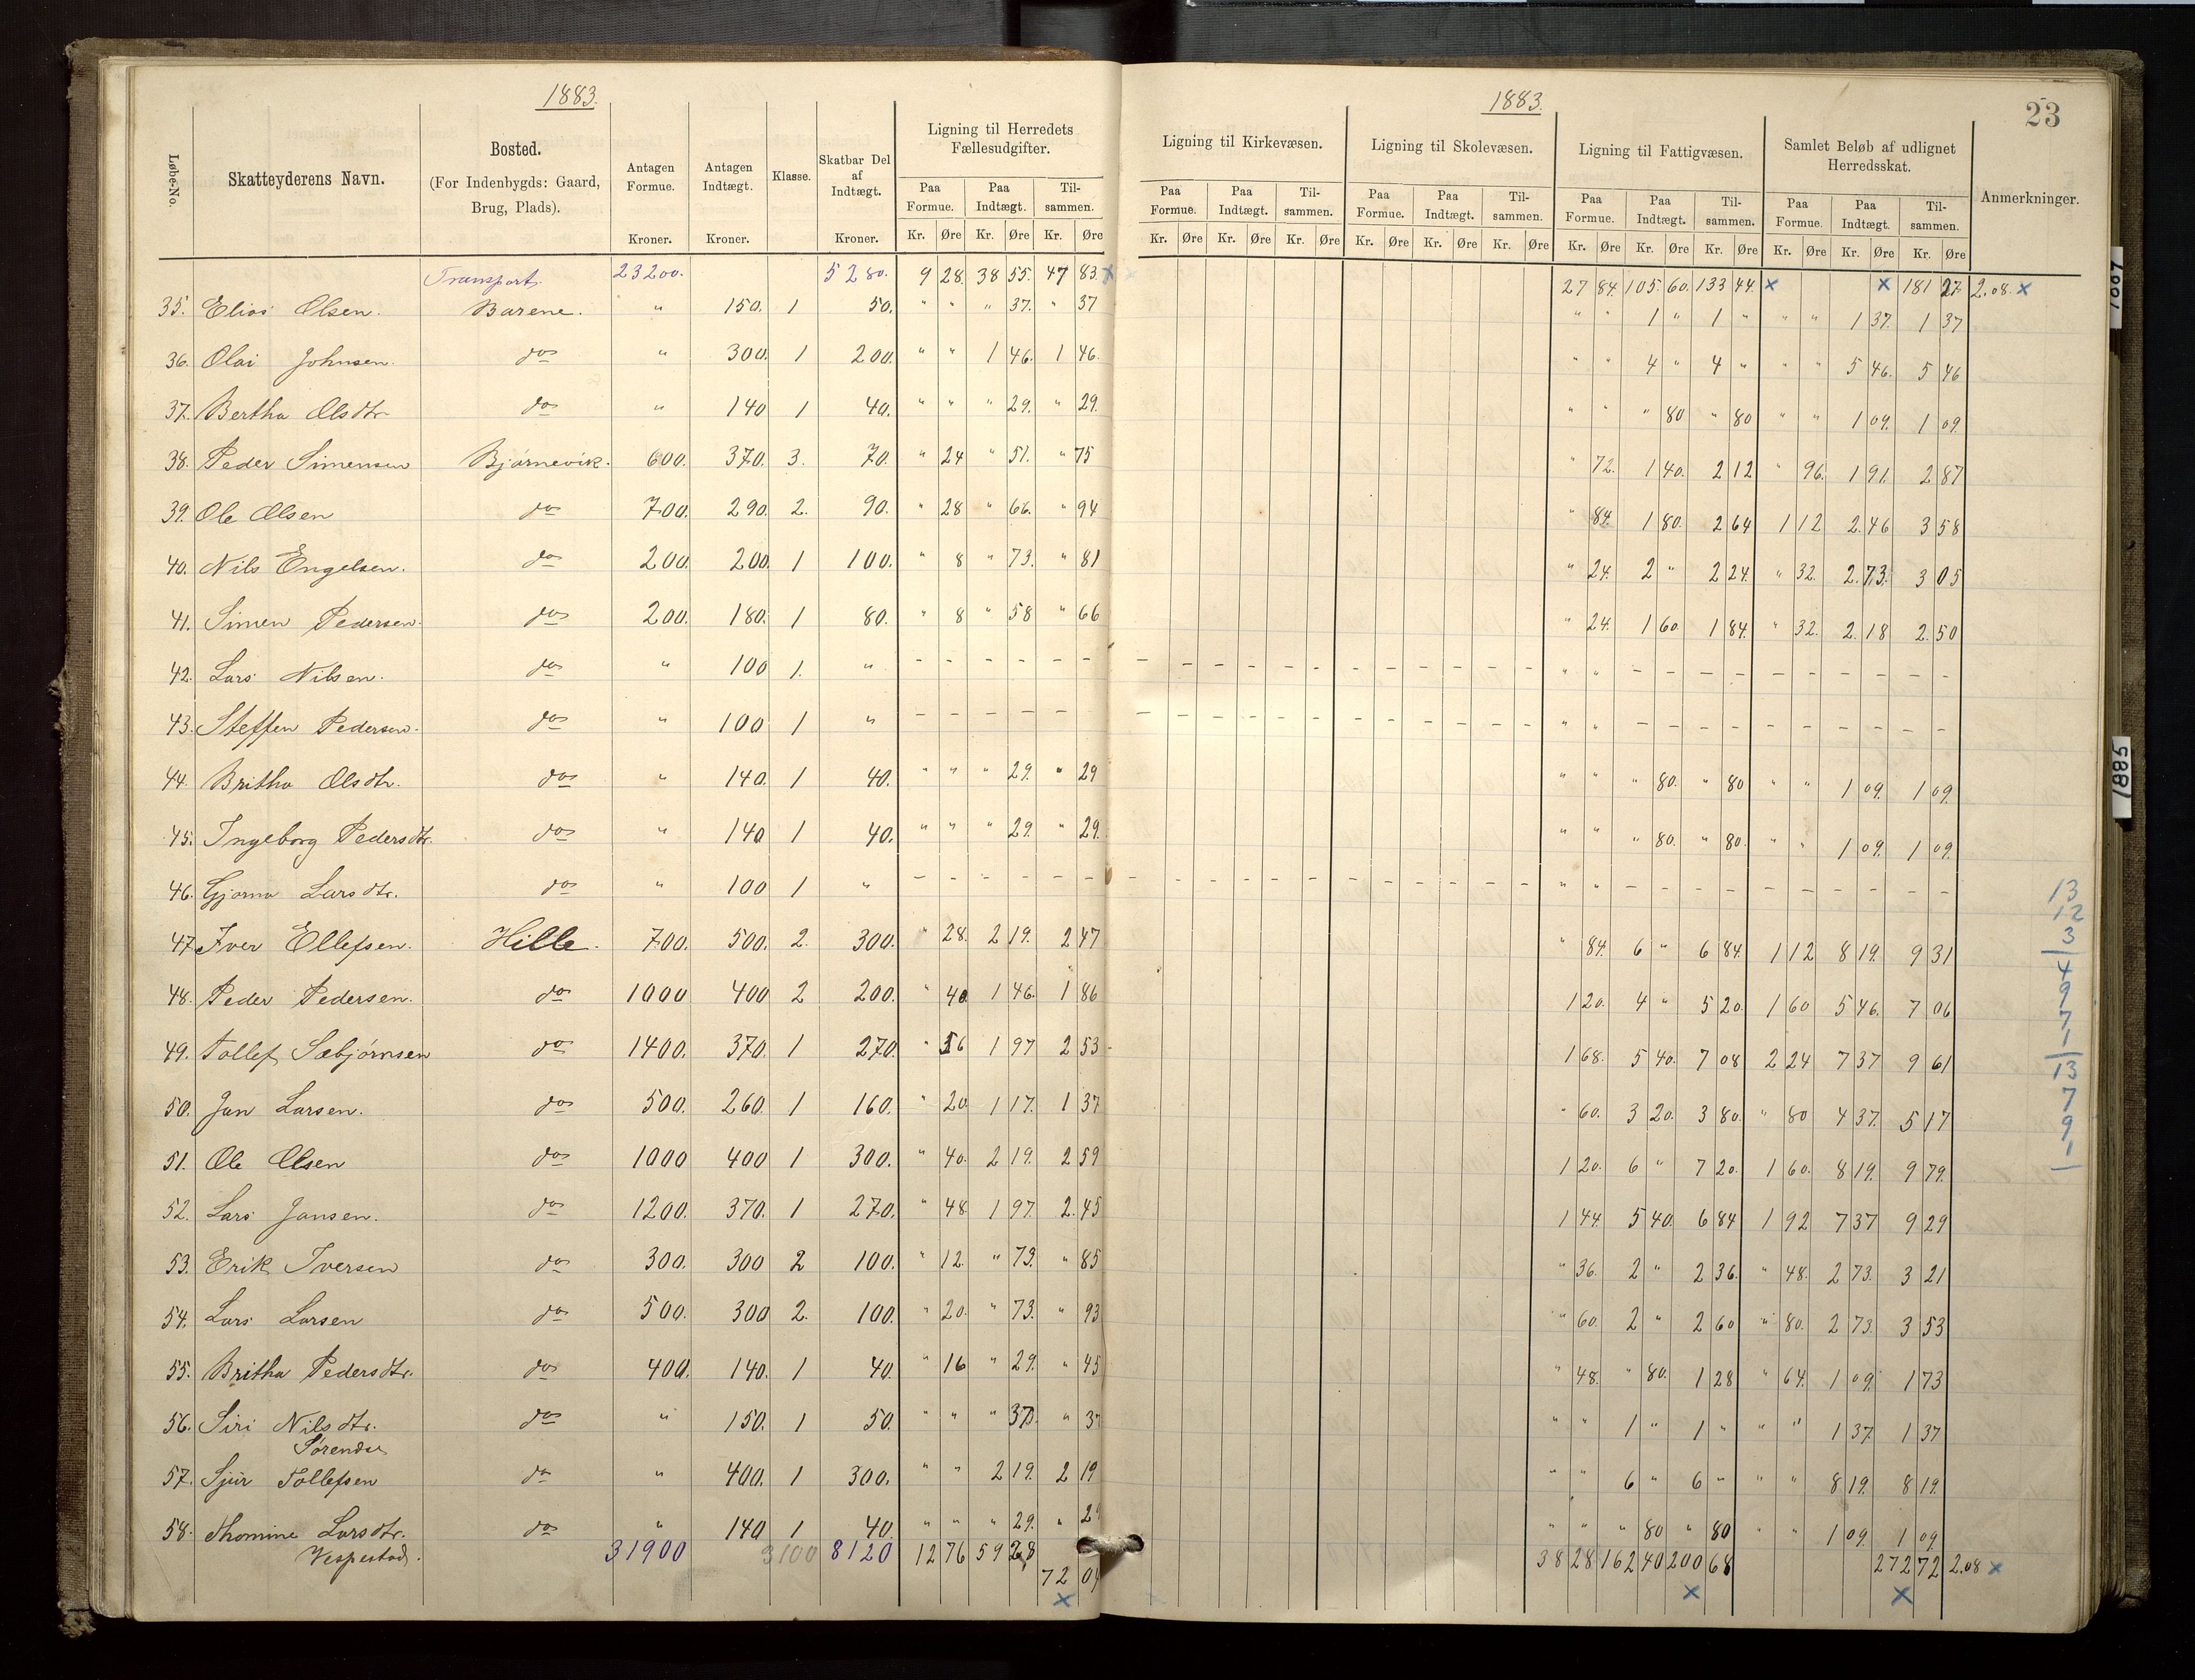 1883.
1883.
23
Løbe-No.
Skatteyderens Navn.
Bosted.
(For Indenbygds: Gaard,
Brug, Plads).
Antagen
Formue.
Kroner.
Antagen
Indtægt.
Kroner.
Klasse.
Skatbar Del
af
Indtægt.
Kroner.
Ligning til Herredets
Fællesudgifter.
Paa Formue. Paa Indtægt. Til-sammen.
Kr. Øre Kr. Øre Kr. Øre
Ligning til Kirkevæsen.
Paa Formue. Paa Indtægt. Til-sammen.
Kr. Øre Kr. Øre Kr. Øre
Ligning til Skolevæsen.
Paa Formue. Paa Indtægt. Til-sammen.
Kr. Øre Kr. Øre Kr. Øre
Ligning til Fattigvæsen.
Paa Formue. Paa Indtægt. Til-sammen.
Kr. Øre Kr. Øre Kr. Øre
Samlet Beløb af udlignet
Herredsskat.
Paa Formue. Paa Indtægt. Til-sammen.
Kr. Øre Kr. Øre Kr. Øre
Anmerkninger.
Transport. 23200. 5280. 9 28. 38 55. 47 83 x 27 84. 105. 60. 133 44. x x 181 27. 2.08. x
35. Elias Olsen. Barene. " 150. 1 50. " " " 37. " 37 " " 1 " 1 " " " 1 37. 1 37
36. Olai Johnsen. do " 300. 1 200. " " 1 46. 1 46. " " 4 " 4 " " " 5 46. 5 46
37. Bertha Olsdtr. do " 140 1 40. " " " 29. " 29. " " " 80 " 80 " " 1 09. 1 09.
38. Peder Simensen Bjørnevik. 600. 370. 3. 70. " 24 " 51. " 75 " 72. 1 40. 2 12 " 96. 1 91. 2 87
39. Ole Olsen do 700. 290. 2. 90. " 28 " 66. " 94 " 84. 1 80. 2 64 1 12 2.46 3 58
40. Nils Engelsen. do 200. 200. 1 100. " 8 " 73. " 81 " 24. 2 " 2 24. " 32. 2.73. 3 05
41. Simen Pedersen. do 200. 180. 1 80. " 8 " 58 " 66 " 24. 1 60. 1 84. " 32. 2.18 2.50
42. Lars Nilsen. do " 100 1. " – – – – – – – – – – – – – – – – – – " " – – – – – – – – – –
43. Steffen Pedersen. do " 100 1 " – – – – – – – – – – – – – – – – – " " – – – – – – – – – –
44. Britha Olsdtr. do " 140. 1 40. " " " 29. " 29 " " " 80. " 80 " " 1 09. 1 09.
45. Ingeborg Pedersdtr. do " 140 1 40. " " " 29. " 29. " " " 80. " 80. " " 1 09. 1 09.
46.Jorna Larsdtr. do " 100 1 " – – – – – – – – – – – – – – – – – – " " – – – – – – – – – –
47. Iver Ellefsen. Hille. 700. 500. 2. 300. " 28. 2 19. 2 47 " 84. 6 " 6 84. 1 12 8 19. 9 31
48. Peder Pedersen. do 1000 400 2 200. " 40 1 46. 1 86 1 20. 4 " 5 20. 1 60 5 46. 7 06
49. Tollef Sæbjørnsen do 1400. 370. 1 270. " 56 1 97 2 53 1 68. 5 40. 7 08 2 24 7 37 9 61
50. Jan Larsen. do 500. 260. 1 160. " 20 1 17. 1 37 " 60. 3 20. 3 80. " 80 4 37. 5 17
51. Ole Olsen do 1000 400 1 300. " 40. 2 19. 2 59 1 20. 6 " 7 20. 1 60. 8 19. 9 79.
52. Lars Jansen. do 1200. 370. 1 270. " 48 1 97. 2.45 1 44. 5 40. 6 84 1 92 7 37 9 29
53. Erik Iversen do 300. 300 2 100. " 12. " 73. " 85 " 36. 2 " 2 36. " 48. 2 73. 3 21
54. Lars Larsen do 500. 300 2. 100. " 20. " 73. " 93 " 60. 2 " 2 60 " 80. 2 73. 3 53
55. Britha Pedersdtr. do 400. 140. 1 40. " 16 " 29. " 45 " 48. " 80. 1 28 " 64. 1 09. 1 73
56. Siri Nilsdtr. do " 150. 1 50. " " " 37. " 37 " " 1 " 1 " " " 1 37. 1 37
57. Sjur Tollefsen do " 400. 1 300. " " 2 19. 2 19 " " 6 " 6 " " " 8 19. 8 19.
58. Thomine Larsdtr. do " 140 1 40. " " " 29. " 29 " " " 80 " 80 " " 1 09. 1 09.
Vespestad. 31900 3100 8120 12 76 59 28 38 28 162 40 200 68 272 72 2.08 x
72 04
x x x
13
12
3
4
9
7
1
13
7
9
1
1885